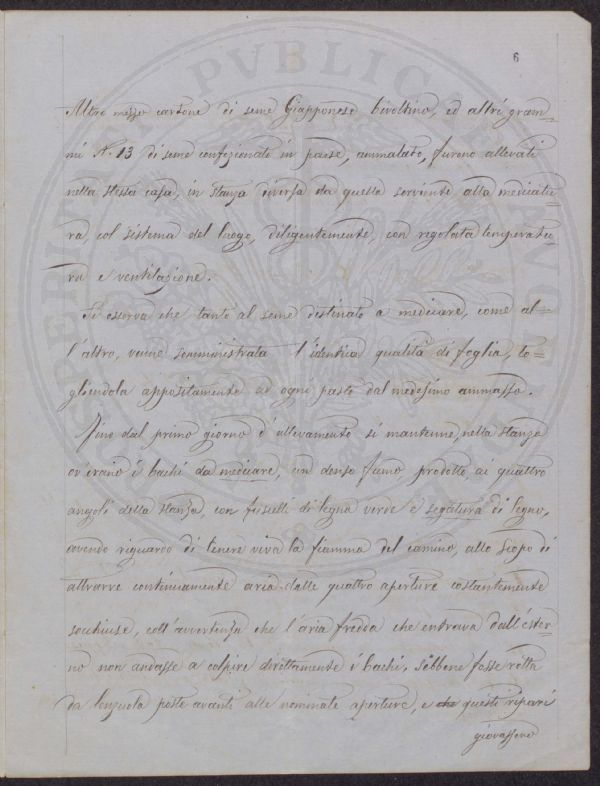 6
Altro mezzo cartone di seme Giapponese bivoltino, ed altri gram=
mi N.° 13 di seme confezionato in paese, ammalato, furono allevati
nella stessa casa, in stanza diversa da quella serviente alla medicatu=
ra, col sistema del luogo, diligentemente, con regolata temperatu=
ra e ventilazione.
Si osserva che tanto al seme destinato a medicare, come al=
l'altro, venne somministrata l'identica qualità di foglia, to=
gliendola appositamente ad ogni pasto dal medesimo ammasso.
Fino dal primo giorno d'allevamento si mantenne, nella stanza
ov'erano i bachi da medicare, un denso fumo prodotto, ai quattro
angoli della stanza, con fuscelli di legna verde e segatura di legno,
avendo riguardo di tenere viva la fiamma del camino, allo scopo di
attrarre continuamente aria dalle quattro aperture costantemente
socchiuse, coll'avvertenza che l'aria fredda che entrava dall'ester=
no non andasse a colpire direttamente i bachi, sebbene fosse rotta
da lenzuola poste avanti alle nominate aperture, e che questi ripari
giovassero
PVBLICA